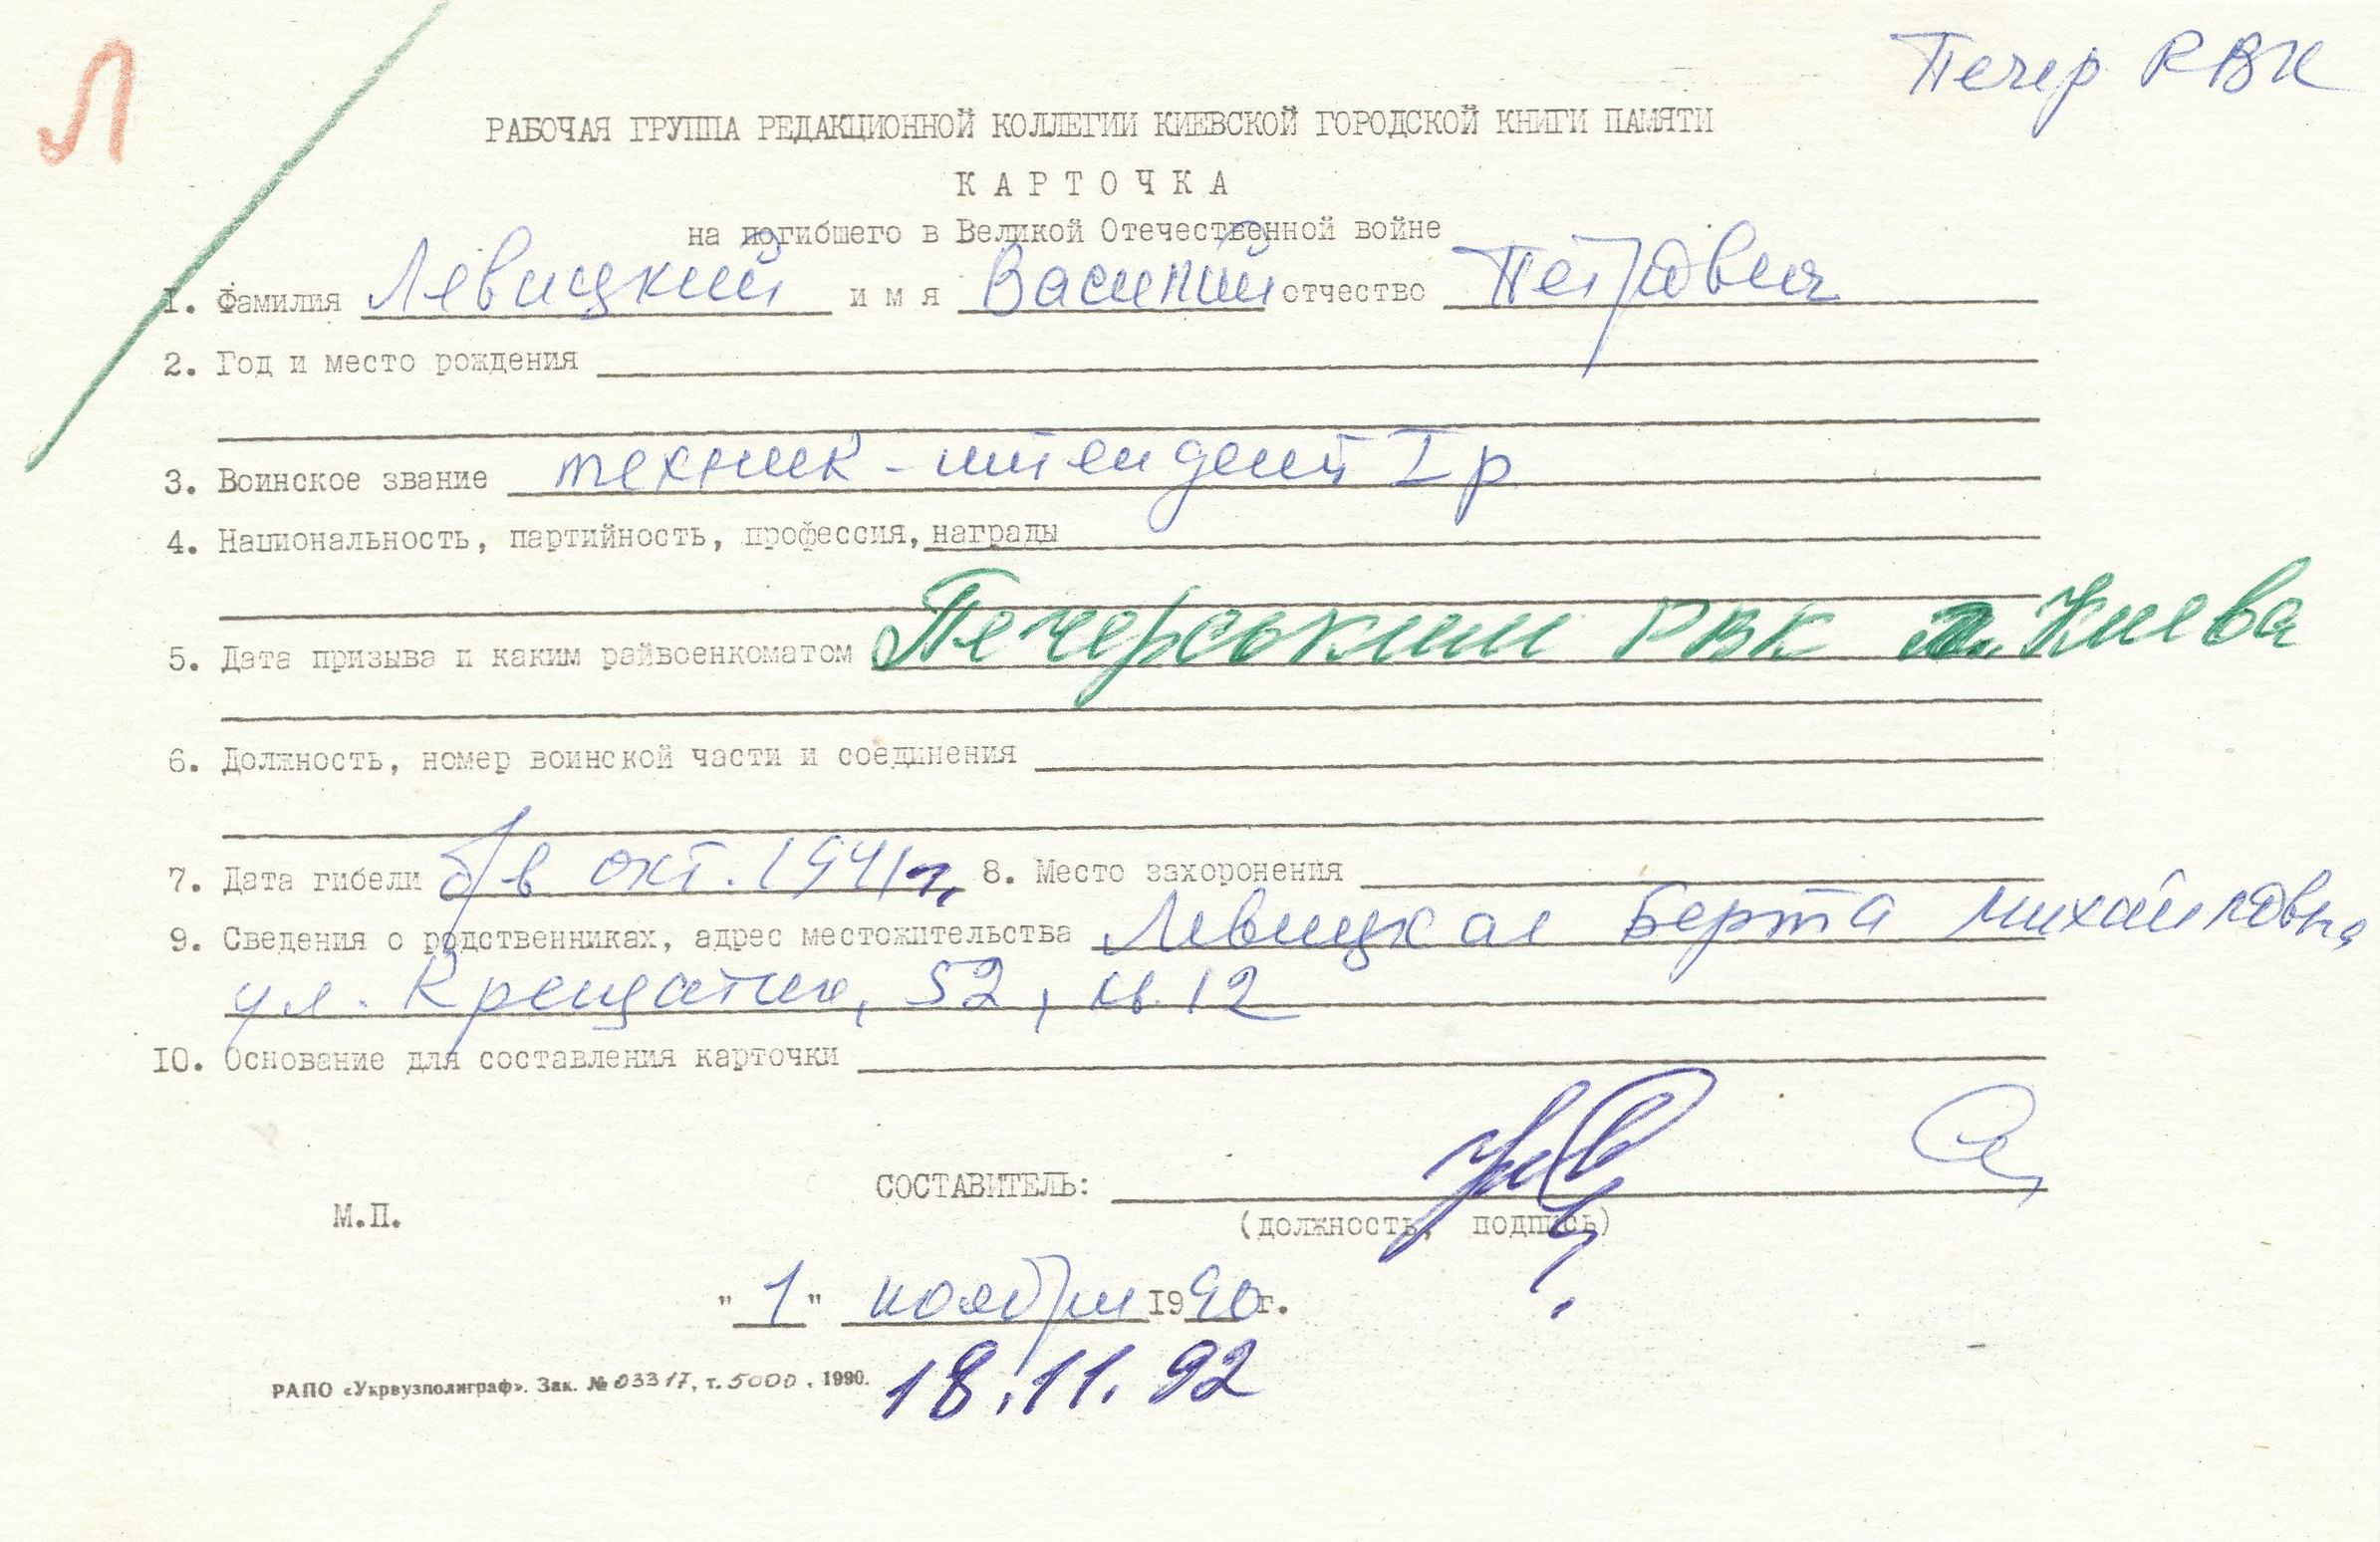 Л
Печер РВК
РАБОЧАЯ ГРУППА РЕДАКЦИОННОЙ КОЛЛЕГИИ КИЕВСКОЙ ГОРОДСКОЙ КНИГИ ПАМЯТИ
КАРТОЧКА
на погибшего в Великой Отечественной войне
1. Фамилия Левицкий имя Василий отчество Петрович
2. Год и место рождения
3. Воинское звание техник-интендант I р
4. Национальность, партийность, профессия, награды
5. Дата призыва и каким райвоенкоматом Печерський РВК м. Києва
6. Должность, номер воинской части и соединения
7. Дата гибели б/в окт. 1941 г. 8. Место захоронения
9. Сведения о родственниках, адрес местожительства Левицкая Берта Михайловна
ул. Крещатик, 52, кв. 12
10. Основание для составления карточки
СОСТАВИТЕЛЬ:
М.П.
(должность, подпись)
"1" ноября 1990г.
РАПО «Укрвузполиграф». Зак. № 03317, т. 5000. 1990.
18.11.92